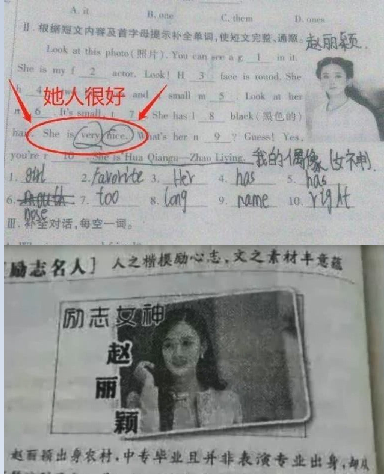 A. it B. one C. them D. ones
Ⅱ. 根据短文内容及首字母提示补全单词,使短文完整、通顺。
赵丽颖
Look at this photo(照片). You can see a g 1 in it.
She is my f 2 actor. Look! H 3 face is round. She
h 4 and s mall m 5 . Look at her
她人很好
6 . It's small, t 7 . She has l 8 black(黑色的)
hair. She is very nice. What's her n 9 ? Guess! Yes,
you're r 10 . She is Hua Qiangu—Zhao Liying.
我的偶像 女神
1. girl 2. favorite 3. Her 4. has 5. has
6. mouth 7. too 8. long 9. name 10. right
nose
Ⅲ. 补全对话,每空一词。
[励志名人] 人之楷模励心志,文之素材丰意蕴
励志女神
赵
丽
颖
赵丽颖出身农村,中专毕业且并非表演专业出身,却从